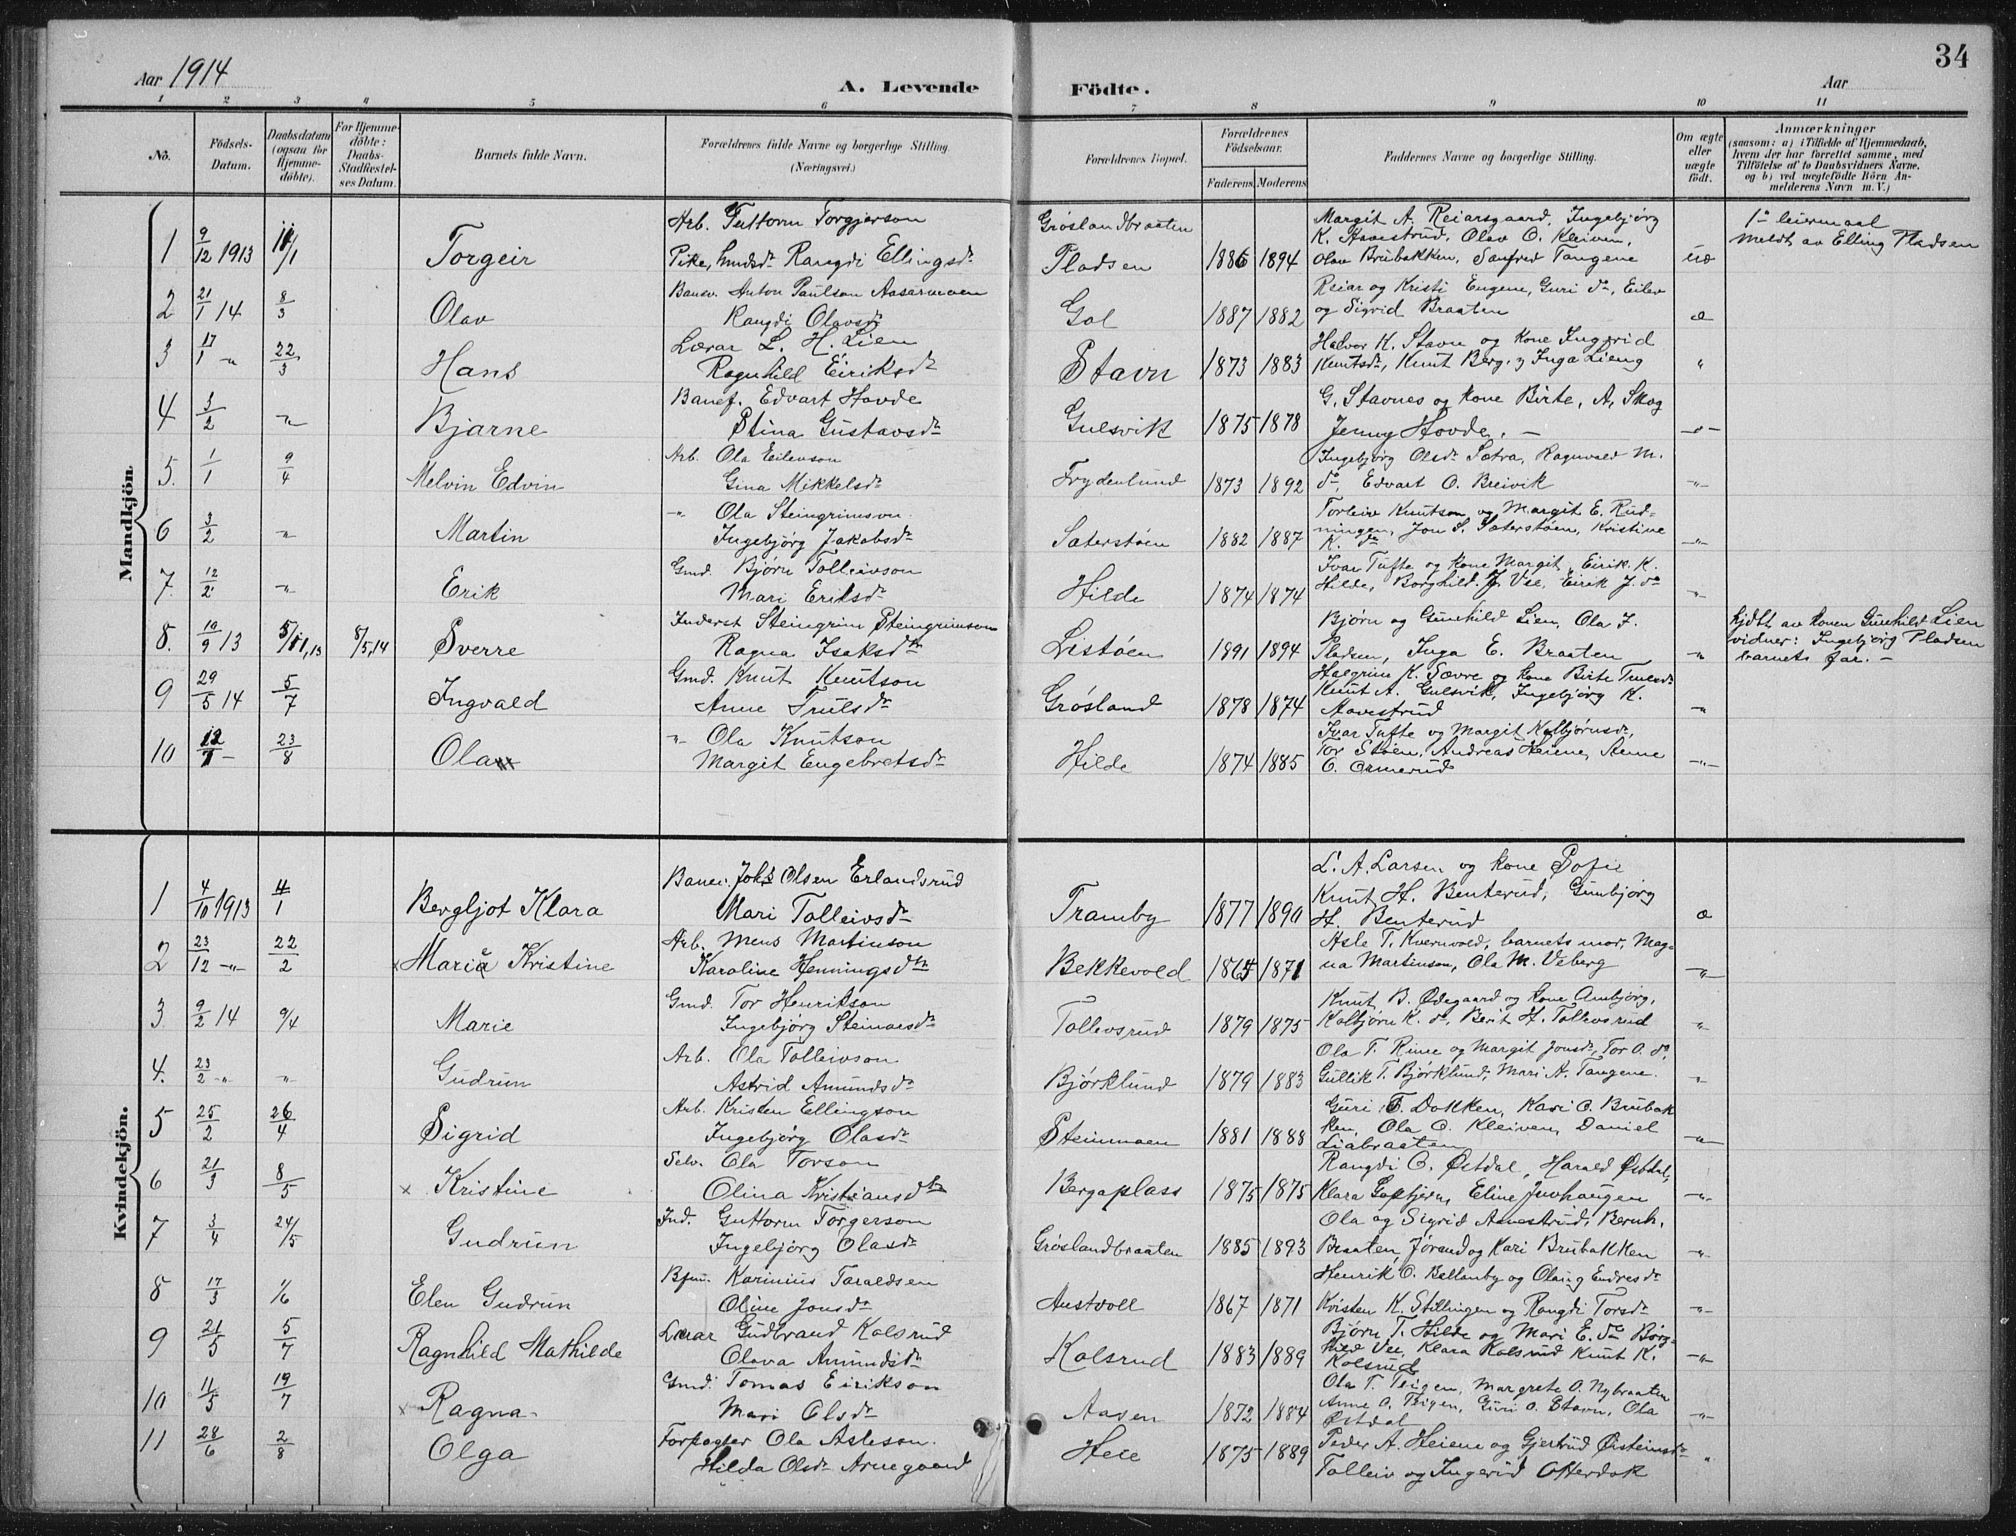 34
Aar 1914
A. Levende
Födte.
Aar
1 2 3 4 5 6 7 8 9 10 11
No.
Födsels-Datum.
Daabsdatum (ogsaa för Hjemmedöbte).
For Hjemmedöbte: Daabs-Stadfæstelses Datum.
Barnets fulde Navn.
Forældrenes fulde Navne og borgerlige Stilling. (Næringsvei.)
Forældrenes Bopæl.
Forældrenes Födselsaar.
Faderens. Moderens.
Faddernes Navne og borgerlige Stilling.
Om ægte eller uægte födt.
Anmærkninger
(saasom: a) i Tilfælde af Hjemmedaab, hvem der har forrettet samme, med Tilföielse af to Daabsvidners Navne. og b) ved uægtefödte Börn Anmelderens Navn m. V.)
Mandkjön.
Arb. Guttorm Torgjerson Grøslandbraaten Margit A. Reiarsgaard, Ingebjørg 1ste leiermaal
1 9/12 1913 11/1 Torgeir Pike, Rangdi Ellingsdr Pladsen 1886 1894 K. Aavestrud, Olav O. Kleiven, Olav Brubakken, Sanfred Tangene uæ meldt av Elling Pladsen
Banev. Anton Paulson Aasarmoen Reiar og Kristi Engene, Guri do, Eilev
2 21/1 14 8/3 Olav Rangdi Olavsdr Gol 1887 1882 og Sigrid Braaten æ
Lærar L. H. Lien Halvor K. Stavn og kone Ingerid
3 17/1 " 22/3 Hans Ragnhild Eiriksdr Stavn 1873 1883 Knutsdr, Knut Berg, Inga Lieng "
Banef. Edvart Hovde G. Stavnes og kone Birte, A. Skog
4 3/2 " Bjarne Stina Gustavsdr Gulsvik 1875 1878 Jenny Hovde. "
Arb. Ola Eilevson Ingebjørg Olsdr Sætra, Ragnvald M.
5. 1/1 9/4 Melvin Edvin Gina Mikkelsdr Frydenlund 1873 1892 do, Edvart O. Breivik "
" Ola Steingrimson Torleiv Knutson og Margit E. Rud-
6 3/2 " Martin Ingebjørg Jakobsdr Sæterstøen 1882 1887 ningen, Jon S. Sæterstøen, Kristine K. do "
Gmd. Bjørn Tolleivson Ivar Tufte og kone Margit, Eirik K.
7. 12/2 " Erik Mari Eriksdr Hilde 1874 1874 Hilde, Borghild J. Vee, Eirik J. do "
Inderst Steingrim Steingrimson Bjørn og Gunhild Lien, Ola J. hjdbt av konen Gunhild Lien
8. 10/9 13 5/11,13 8/5,14 Sverre Ragna Isaksdtr Listøen 1891 1894 Pladsen, Inga E. Braaten " vidner: Ingebjørg Pladsen
barnets far. -
Gmd. Knut Knutson Halgrim K. Sævre og kone Birte Trulsdr
9 29/5 14 5/7 Ingvald Anne Trulsdr Grøsland 1878 1874 Knut A. Gulsvik, Ingebjørg K. Aavestrud "
" Ola Knutson Ivar Tufte og Margit Kolbjørnsdr,
10 12/7 - 23/8 Ola Margit Engebretsdr Hilde 1874 1885 Tor Støen, Andreas Heiene, Anne O. Ormerud "
Kvindekjön.
Banev. Johs Olsen Erlandsrud L. A. Larsen og kone Sofie
1 4/10 1913 4/1 Bergljot Klara Mari Tolleivsdr Tramby 1877 1890 Knut H. Benterud, Gunbjørg H. Benterud æ
Arb. Mens Martinson Asle T. Kvernvold, barnets mor, Mag-
2 23/12 " 22/2 x Maria Kristine Karoline Henningsdtr Bekkevold 1865 1871 na Martinson, Ola M. Veberg "
Gmd. Tor Henrikson Knut B. Ødegaard og kone Ambjørg,
3 9/2 14 9/4 Marie Ingebjørg Steinarsdr Tollevsrud 1879 1875 Kolbjørn K. do, Berit H. Tollevsrud "
Arb. Ola Tolleivson Ola T. Rime og Margit Jonsdr, Tor O. do,
4. 23/2 " " Gudrun Astrid Amundsdr Bjørklund 1879 1883 Gullik T. Bjørklund, Mari A. Tangene. "
Arb. Kristen Ellingson Guri T. Dokken, Kari O. Brubak
5 25/2 26/4 Sigrid Ingebjørg Olasdr Steinmoen 1881 1888 ken, Ola O. Kleiven, Daniel Liabraaten "
Selv. Ola Torson Rangdi O. Østdal, Harald Østdal,
6 21/3 8/5 x Kristine Olina Kristiansdtr Bergaplass 1875 1875 Klara , Eline Juvhaugen "
Ind. Guttorm Torgerson Ola og Sigrid Aavestrud, Bernh.
7 3/4 24/5 Gudrun Ingebjørg Olasdr Grøslandbraaten 1885 1893 Braaten, Jørand og Kari Brubakken "
Bfm. Karinius Taraldsen Henrik O. Bellanby og Olaug Endresdr
8 17/3 1/6 Elen Gudrun Oline Jonsdr Austvoll 1867 1871 Kristen K. Stillingen og Rangdi Torsdr "
Lærar Gudbrand Kolsrud Bjørn T. Hilde og Mari E. do Borg-
9 21/5 5/7 Ragnhild Mathilde Olava Amundsdr Kolsrud 1883 1889 hild Vee, Klara Kolsrud Knut K. Kolsrud "
Gmd. Tomas Eirikson Ola T. Teigen, Margrete O. Nybraaten
10 11/5 19/7 x Ragna Mari Olsdr Aasen 1872 1884 Anne O. Teigen, Guri O. Stavn, Ola Østdal "
Forpagter Ola Asleson Peder A. Heiene og Gjertrud Øisteinsdr
11 28/6 2/8 Olga Hilda Olsdr Arnegaard Heie 1875 1889 Tolleiv og Ingerid Ofterdok "